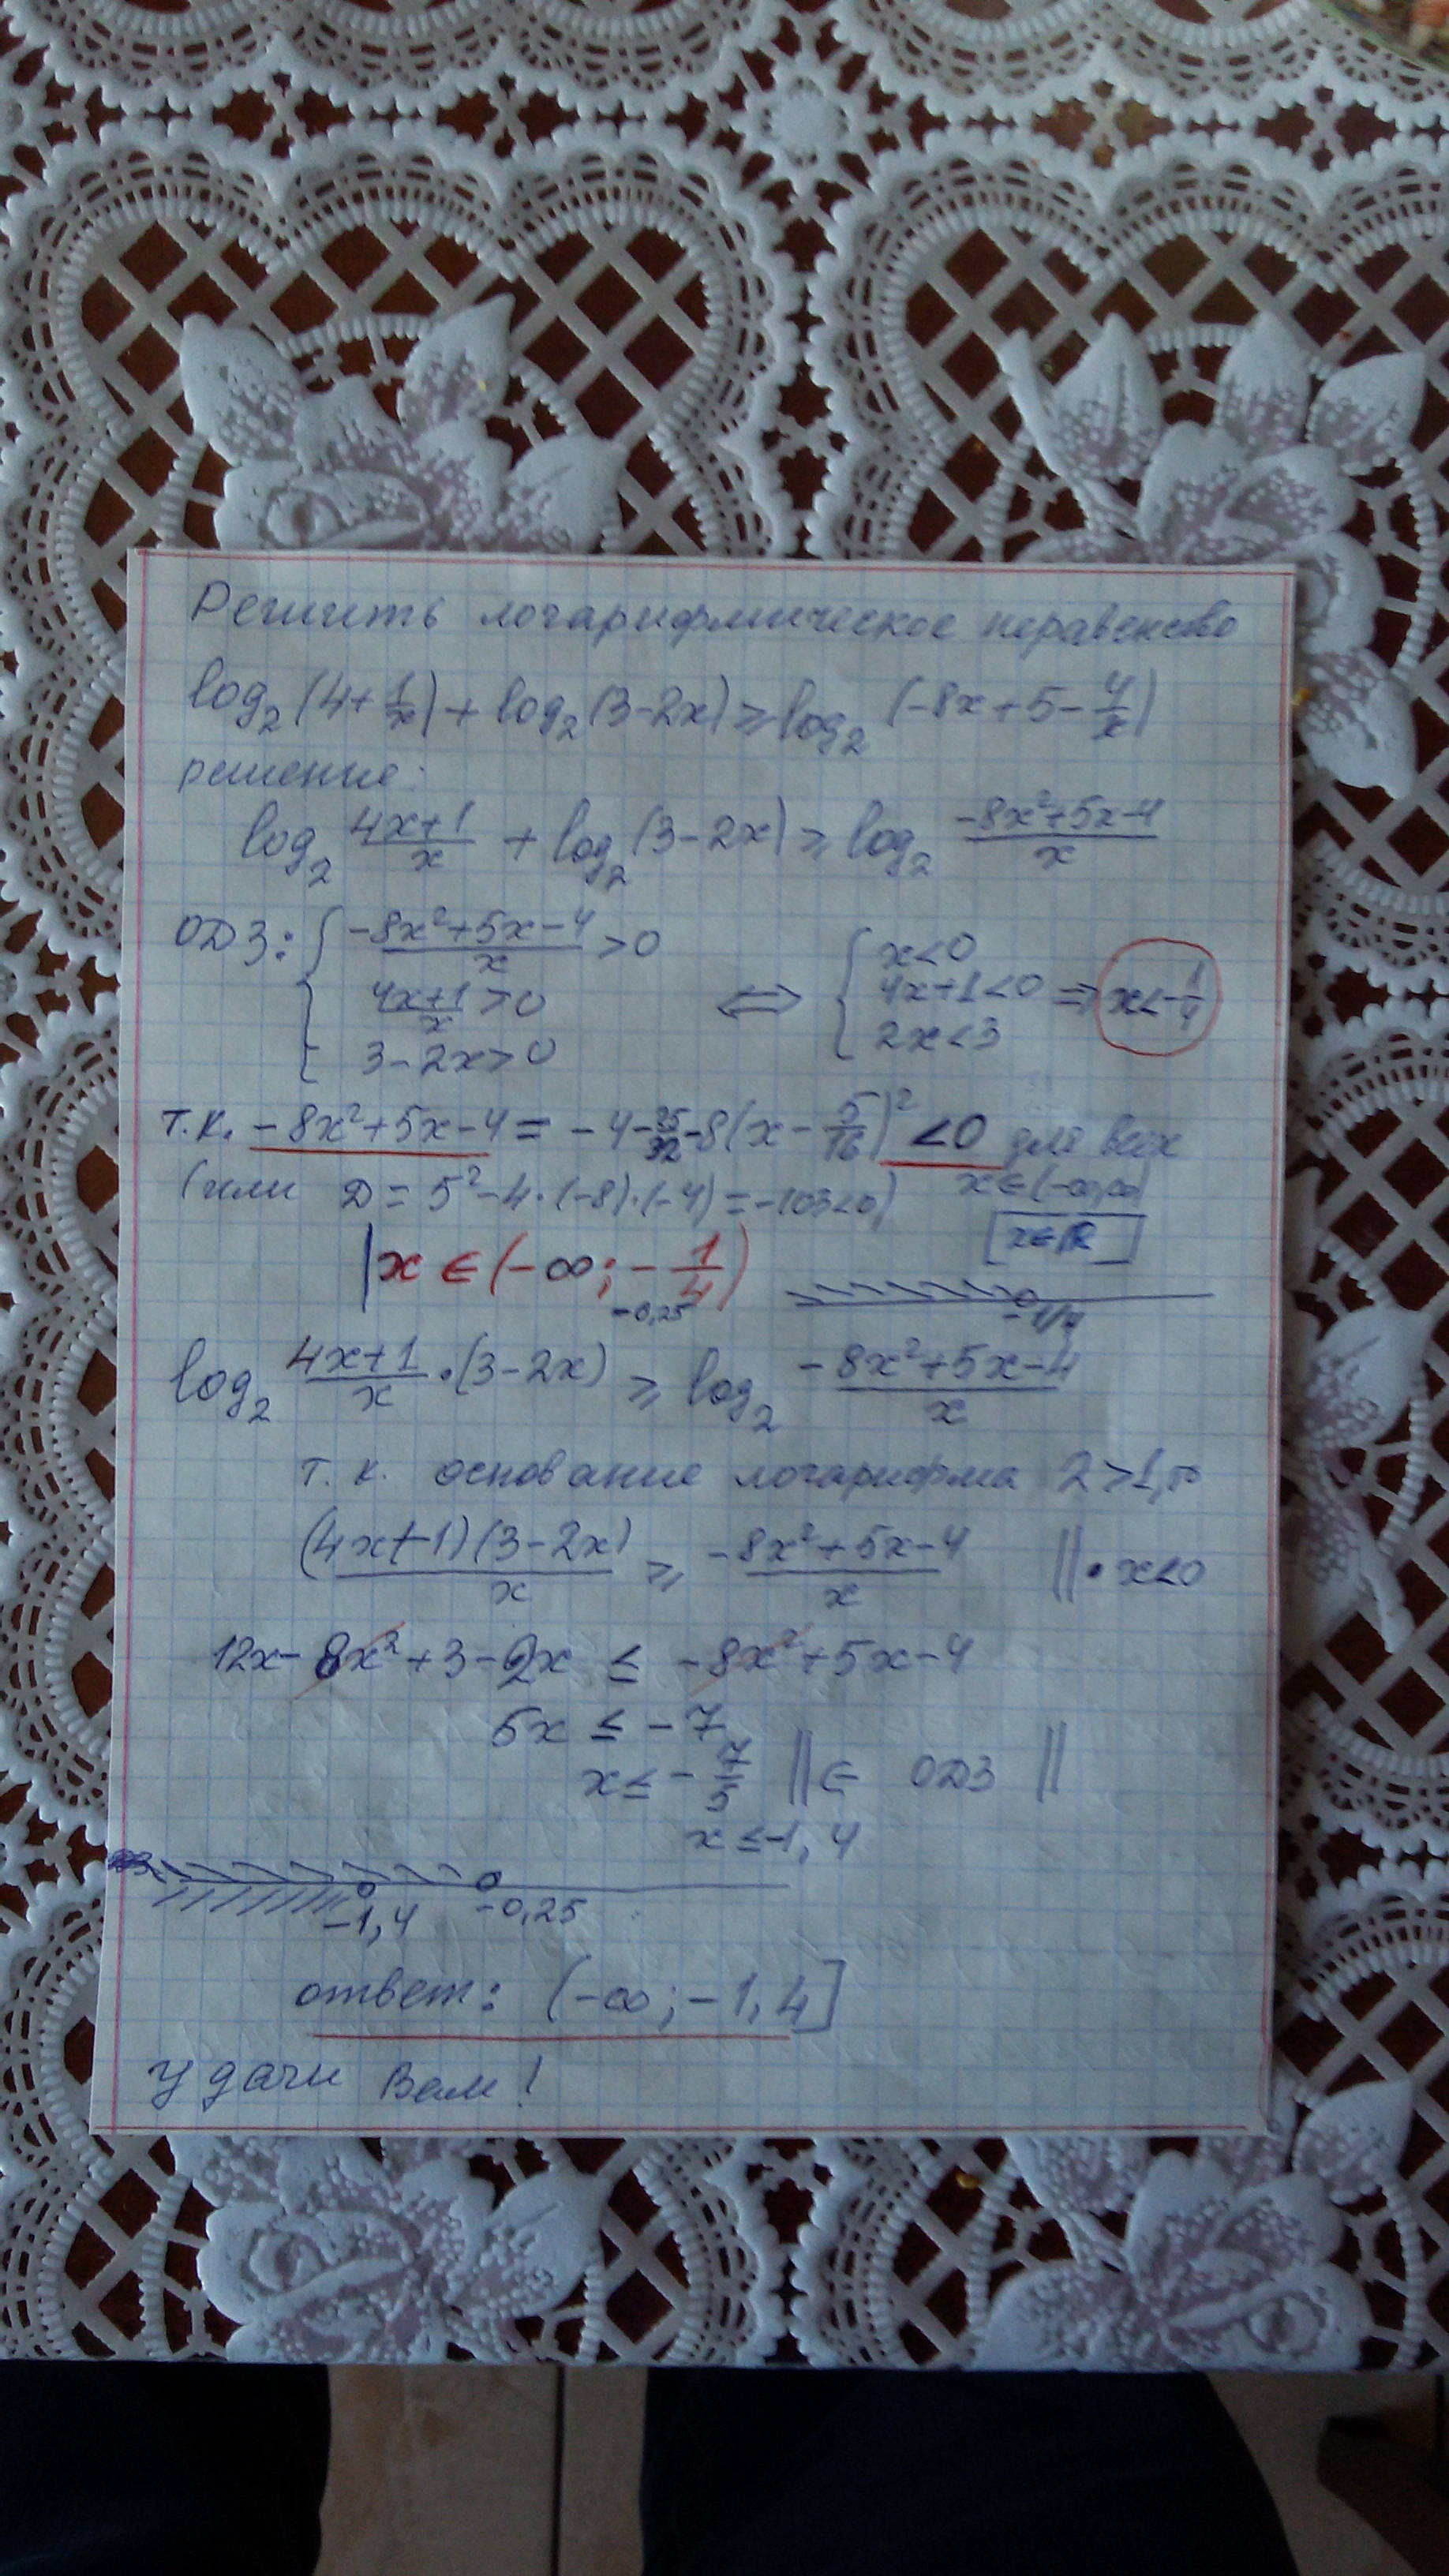 Решить логарифмическое неравенство
log₂(4+1/x)+log₂(3-2x)≥log₂(-8x+5-4/x)
решение:
log₂ (4x+1)/x + log₂(3-2x)≥log₂ (-8x²+5x-4)/x
ОДЗ: { (-8x²+5x-4)/x >0
(4x+1)/x >0
3-2x>0
⇔ { x<0
4x+1<0 ⇒ x<-1/4
2x<3
т.к. -8x²+5x-4 = -4-25/32-8(x-5/16)² <0 для всех
(или D=5²-4·(-8)·(-4)=-103<0) x∈(-∞,∞)
[x∈R]
|x∈(-∞;-1/4)
-0,25
-1/4
log₂ (4x+1)/x ·(3-2x) ≥ log₂ (-8x²+5x-4)/x
т.к. основание логарифма 2>1, то
(4x+1)(3-2x)/x ≥ (-8x²+5x-4)/x ||· x<0
12x-8x²+3-2x ≤ -8x²+5x-4
5x ≤ -7
x≤-7/5 ||∈ ОДЗ ||
x≤-1,4
-1,4 -0,25
ответ: (-∞;-1,4]
Удачи Вам!